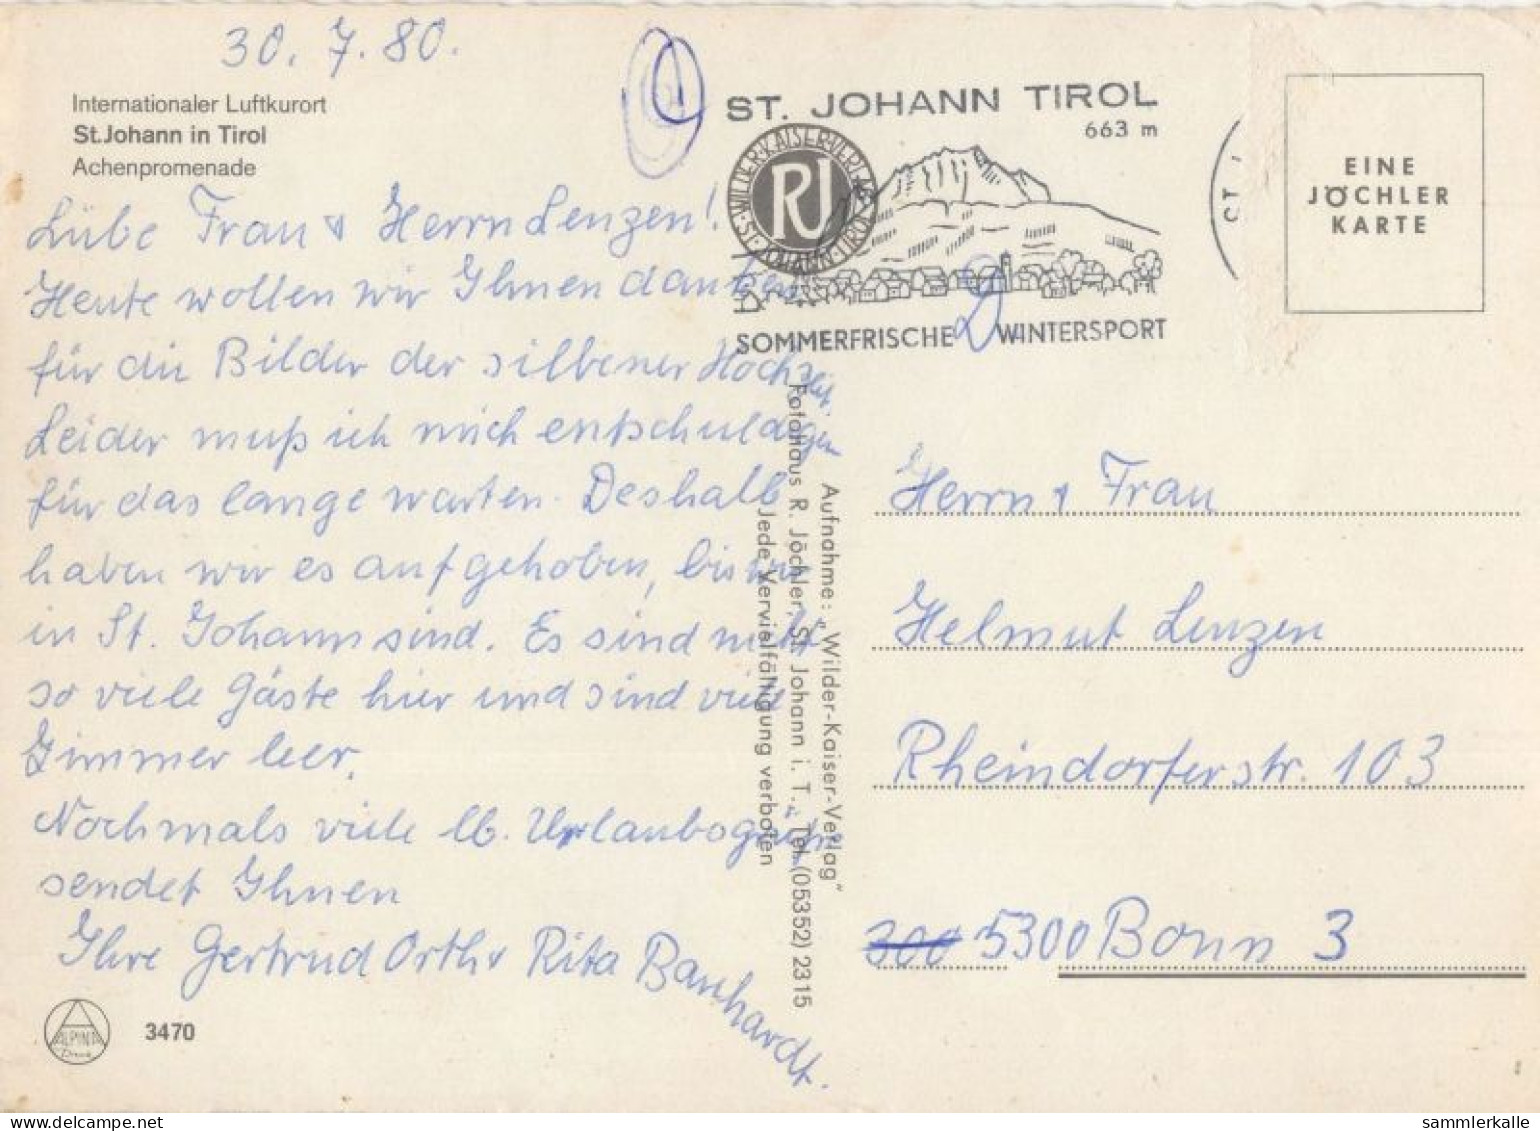 30. 7. 80.
Internationaler Luftkurort
St. Johann in Tirol
Achenpromenade
Lübe Frau & Herrn Lenzen!
Heute wollen wir Ihnen danken
für die Bilder der silbener Hochzeit.
Leider muß ich mich entschuldigen
für das lange warten. Deshalb
haben wir es aufgehoben, bis wir
in St. Johann sind. Es sind nicht
so viele Gäste hier und sind viele
Zimmer leer.
Nochmals viele lb. Urlaubsgrüße
sendet Ihnen
Ihre Gertrud Orth & Rita Banhardt.
ALPINA
Druck
3470
ST. JOHANN TIROL
663 m
WILDER-KAISER-VERLAG
ST. JOHANN-TIROL
RJ
SOMMERFRISCHE WINTERSPORT
ST.
EINE
JÖCHLER
KARTE
Aufnahme: „Wilder-Kaiser-Verlag"
Fotohaus R. Jöchler, St. Johann i. T., Tel. (05352) 2315
Jede Vervielfältigung verboten
Herrn & Frau
Helmut Lenzen
Rheindorferstr. 103
300 5300 Bonn 3
sammlerkalle